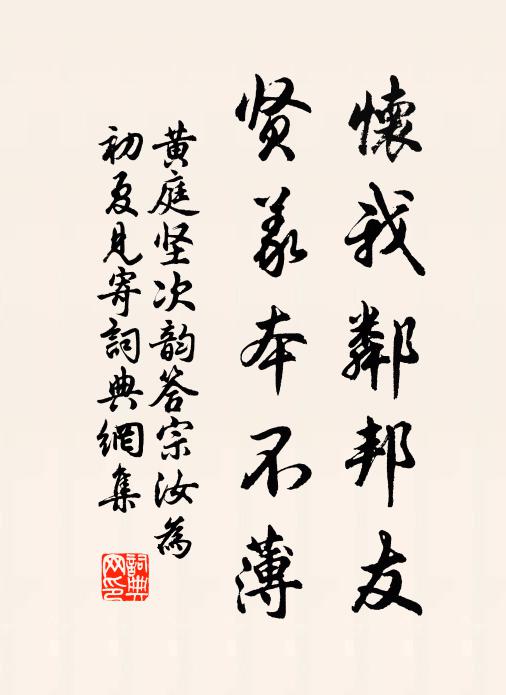 懷我鄰邦友
贤義本不薄
黄庭坚次韵答宗汝為
初夏見寄詞典網集
詞典
网印